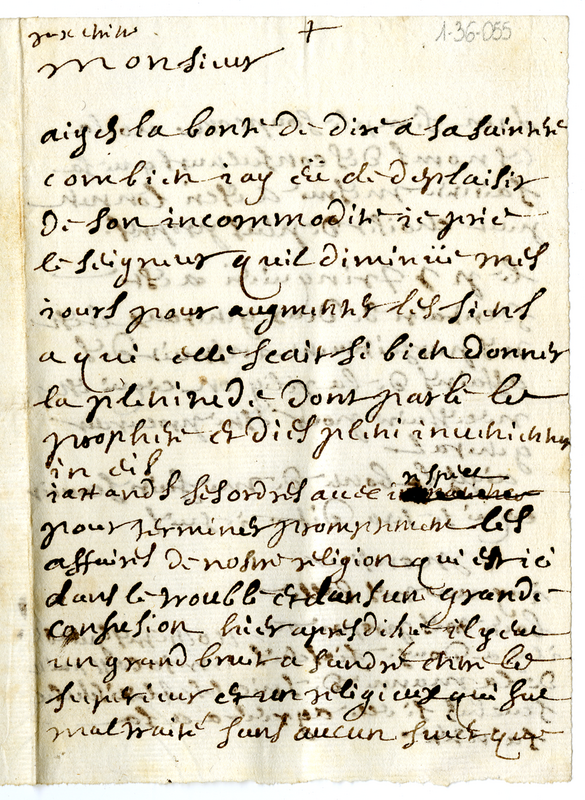 pax christi
1-36-055
Monsieur
aiyes la bonté de dire a sa sainteté
combien iay eü de deplaisir
de son incommodité ie prie
le seigneur quil diminüe mes
iours pour augmenter les siens
a qui elle scait si bien donner
la plenitude dont parle le
prophete et dies pleni invenientur
in eis
iattands ses ordres avec respect
pour terminer promptment les
affaires de nostre religion qui est ici
dans le trouble et dans une grande
confusion hier apres diné il y eut
un grand bruit a s andré entre le
superieur et un religieux qui fut
maltraité sans aucun suiet que